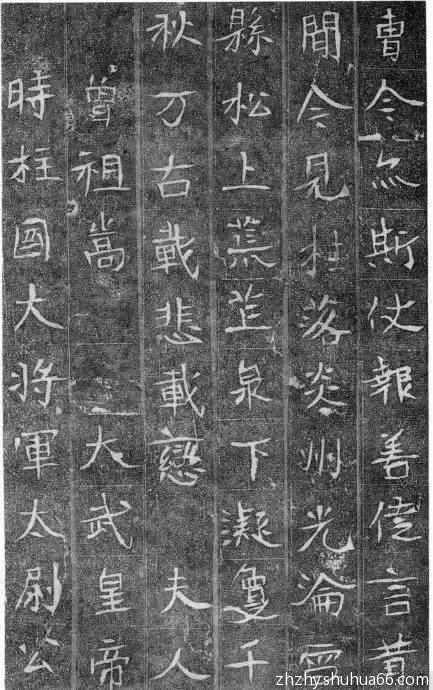 曹令斯仗報善言昔
聞今見桂落炎州光淪
縣松上荒芒泉下凝夐千
秋万古載悲載戀夫人
曾祖嵩大武皇帝
時柱國大將軍太尉公
zhzhyshuhua66.com